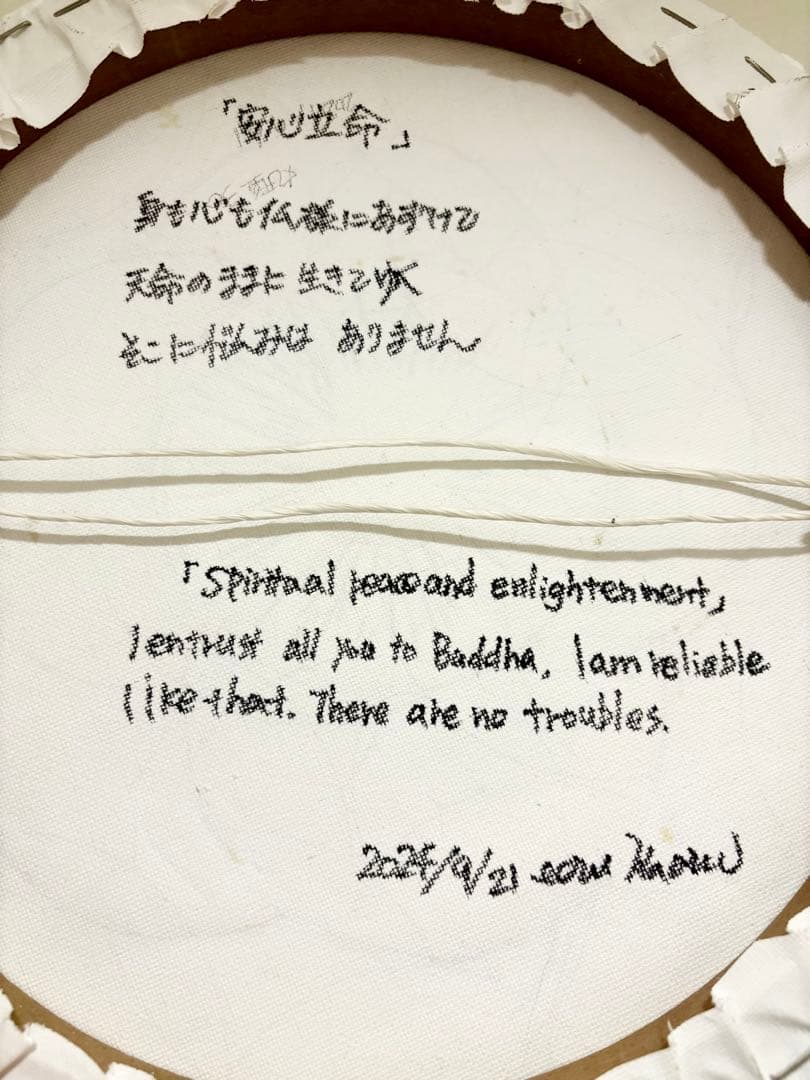 「安心立命」
身も心も仏様にあずけて
天命のままに生きてゆく
そこに悩みは ありません
「Spiritual peace and enlightenment」
I entrust all to Buddha, I am reliable
like that. There are no troubles.
/9/21